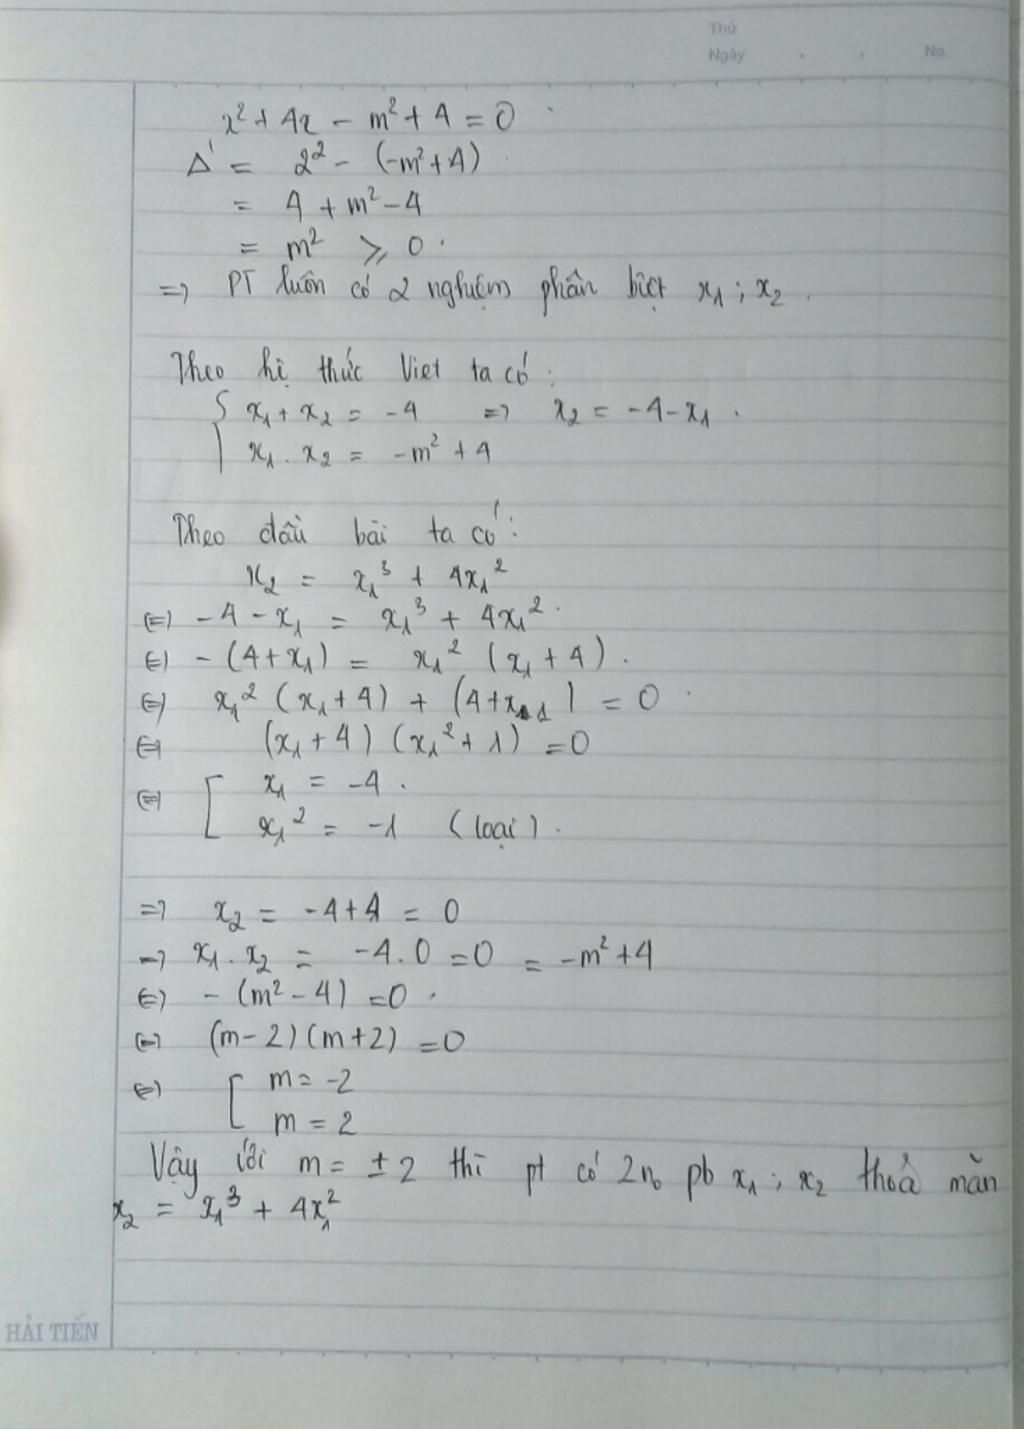 Thứ
Ngày . . No.
x² + 4x - m² + 4 = 0
Δ' = 2² - (-m² + 4)
= 4 + m² - 4
= m² ⩾ 0.
=> PT luôn có 2 nghiệm phân biệt x₁ ; x₂ .
Theo hệ thức Viet ta có :
{ x₁ + x₂ = -4 => x₂ = -4 - x₁ .
x₁ . x₂ = -m² + 4
Theo đầu bài ta có :
x₂ = x₁³ + 4x₁²
<=> -4 - x₁ = x₁³ + 4x₁² .
<=> -(4+x₁) = x₁² (x₁ + 4) .
<=> x₁² (x₁ + 4) + (4+x₁) = 0
<=> (x₁ + 4) (x₁² + 1) = 0
<=> [ x₁ = -4 .
x₁² = -1 (loại) .
=> x₂ = -4+4 = 0
=> x₁ . x₂ = -4.0 = 0 = -m² + 4
<=> -(m² - 4) = 0 .
<=> (m-2)(m+2) = 0
<=> [ m = -2
m = 2
Vậy với m = ±2 thì pt có 2n₀ pb x₁ ; x₂ thoả mãn
x₂ = x₁³ + 4x₁²
HẢI TIẾN